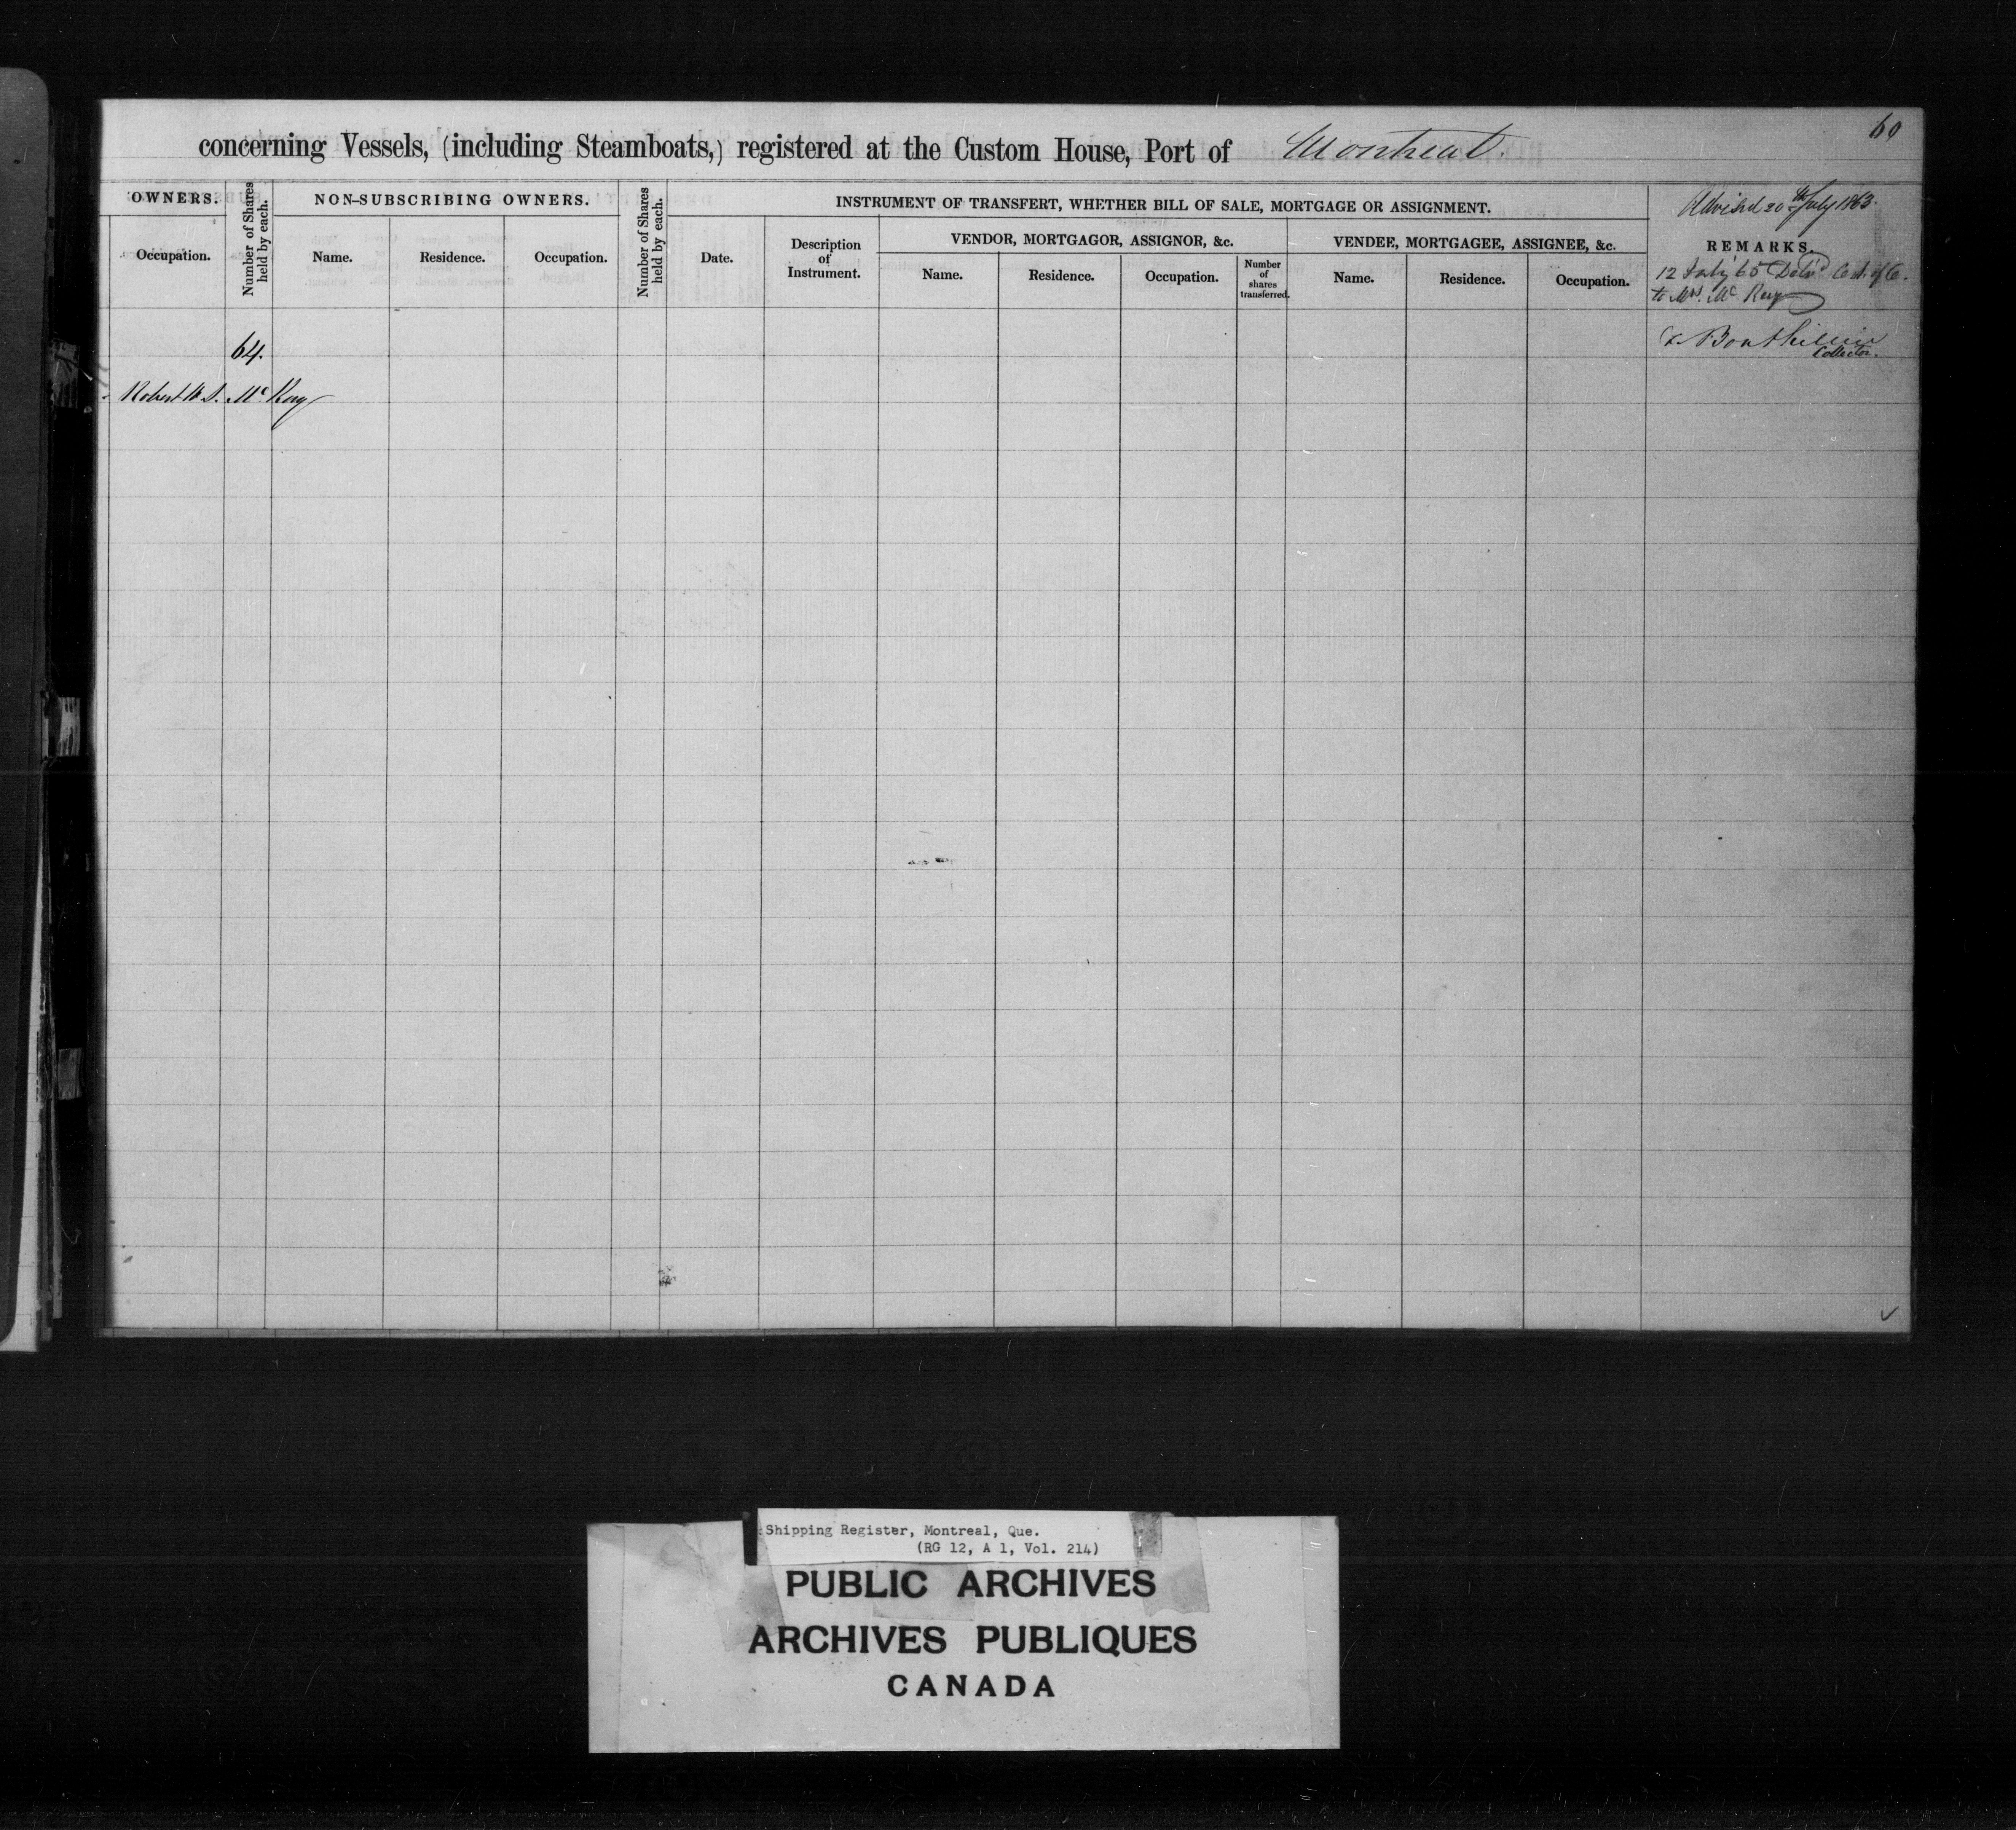 60
concerning Vessels, (including Steamboats,) registered at the Custom House, Port of Montreal.
OWNERS.
Number of Shares held by each.
NON-SUBSCRIBING OWNERS.
Number of Shares held by each.
INSTRUMENT OF TRANSFERT, WHETHER BILL OF SALE, MORTGAGE OR ASSIGNMENT.
Advised 20th July 1863.
VENDOR, MORTGAGOR, ASSIGNOR, &c.
VENDEE, MORTGAGEE, ASSIGNEE, &c.
REMARKS.
Occupation.
Name.
Residence.
Occupation.
Date.
Description
of
Instrument.
Name.
Residence.
Occupation.
Number
of
shares
transferred.
Name.
Residence.
Occupation.
12 July 65 Cert. of C.
to Mrs. Mc Kay
64.
Bouthillier
Collector.
Robert W. S. Mc Kay
Shipping Register, Montreal, Que.
(RG 12, A 1, Vol. 214)
PUBLIC ARCHIVES
ARCHIVES PUBLIQUES
CANADA